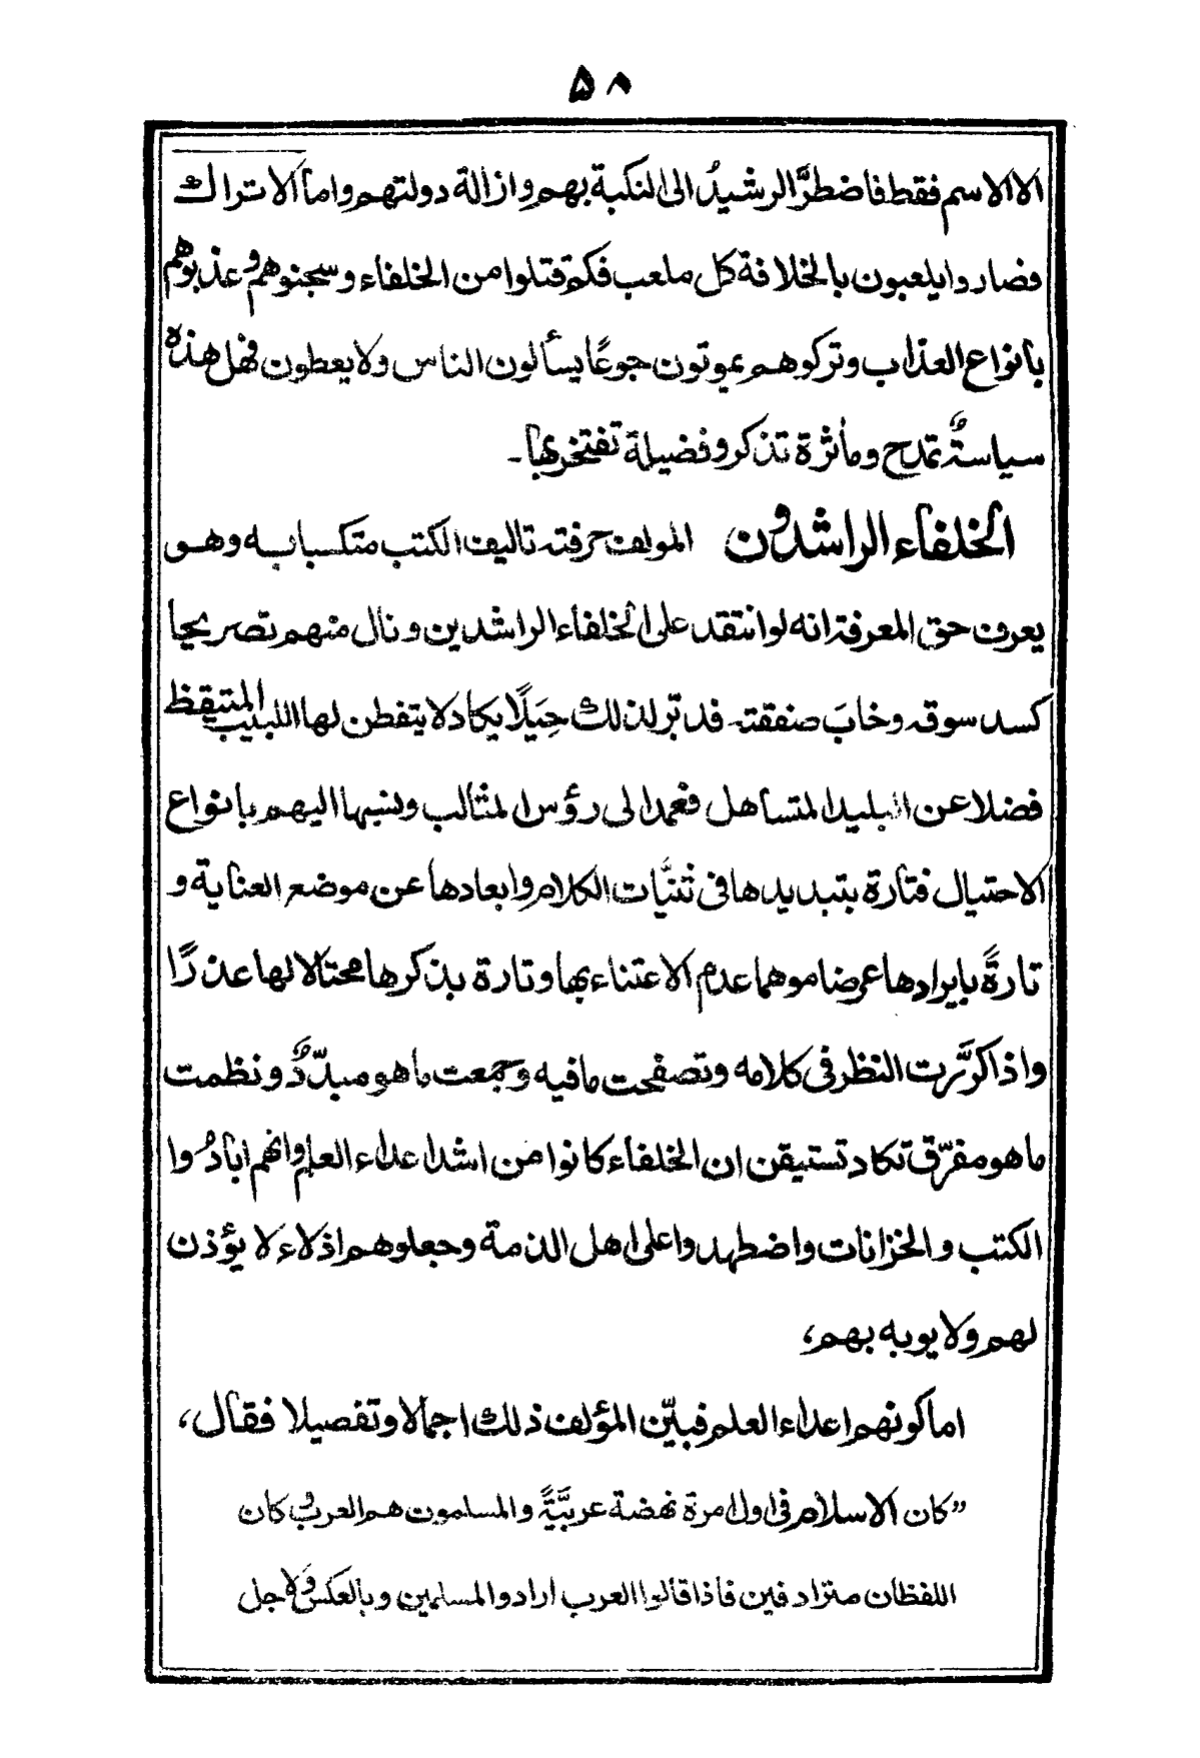 ۵۸
الا الاسم فقط فاضطرَّ الرشيدُ الى النكبة بهم وازالة دولتهم واما الاتراك
فصاروا يلعبون بالخلافة كل ملعب فكم قتلوا من الخلفاء وسجنوهم وعذبوهم
بانواع العذاب وتركوهم يموتون جوعًا يسألون الناس ولا يعطون فهل هذه
سياسةٌ تمدح ومأثرة تذكر وفضيلة تفتخر بها۔
الخلفاء الراشدون المولف حرفته تاليف الكتب متكسبا به وهو
يعرف حق المعرفة انه لو انتقد على الخلفاء الراشدين ونال منهم تصريحا
كسد سوقه وخابَ صنفقته فدبّر لذلك حِيَلًا يكاد لا يتفطن لها اللبيب المتيقظ
فضلا عن البليد المتساهل فعمد الى رؤس المثالب ونسبها اليهم بانواع
الاحتيال فتارة بتبديدها فى ثنيَّات الكلام وابعادها عن موضع العناية و
تارةً بايرادها عرضا موهما عدم الاعتناء بها وتارة بذكرها محتالا لها عذرًا
واذا كرَّرت النظر فى كلامه وتصفحت مافيه وجمعت ما هو مبدّدٌ ونظمت
ما هو مفرّق تكاد تستيقن ان الخلفاء كانوا من اشد اعداء العلم وانهم ابادُوا
الكتب والخزانات واضطهدوا على اهل الذمة وجعلوهم اذلاء لا يؤذن
لهم ولا يوبه بهم،
اما كونهم اعداء العلم فبيّن المؤلف ذلك اجمالا وتفصيلا فقال،
”كان الاسلام فى اول امرة نهضة عربيَّةً والمسلمون هم العرب وكان
اللفظان مترادفين فاذا قالوا العرب ارادوا المسلمين وبالعكس ولاجل